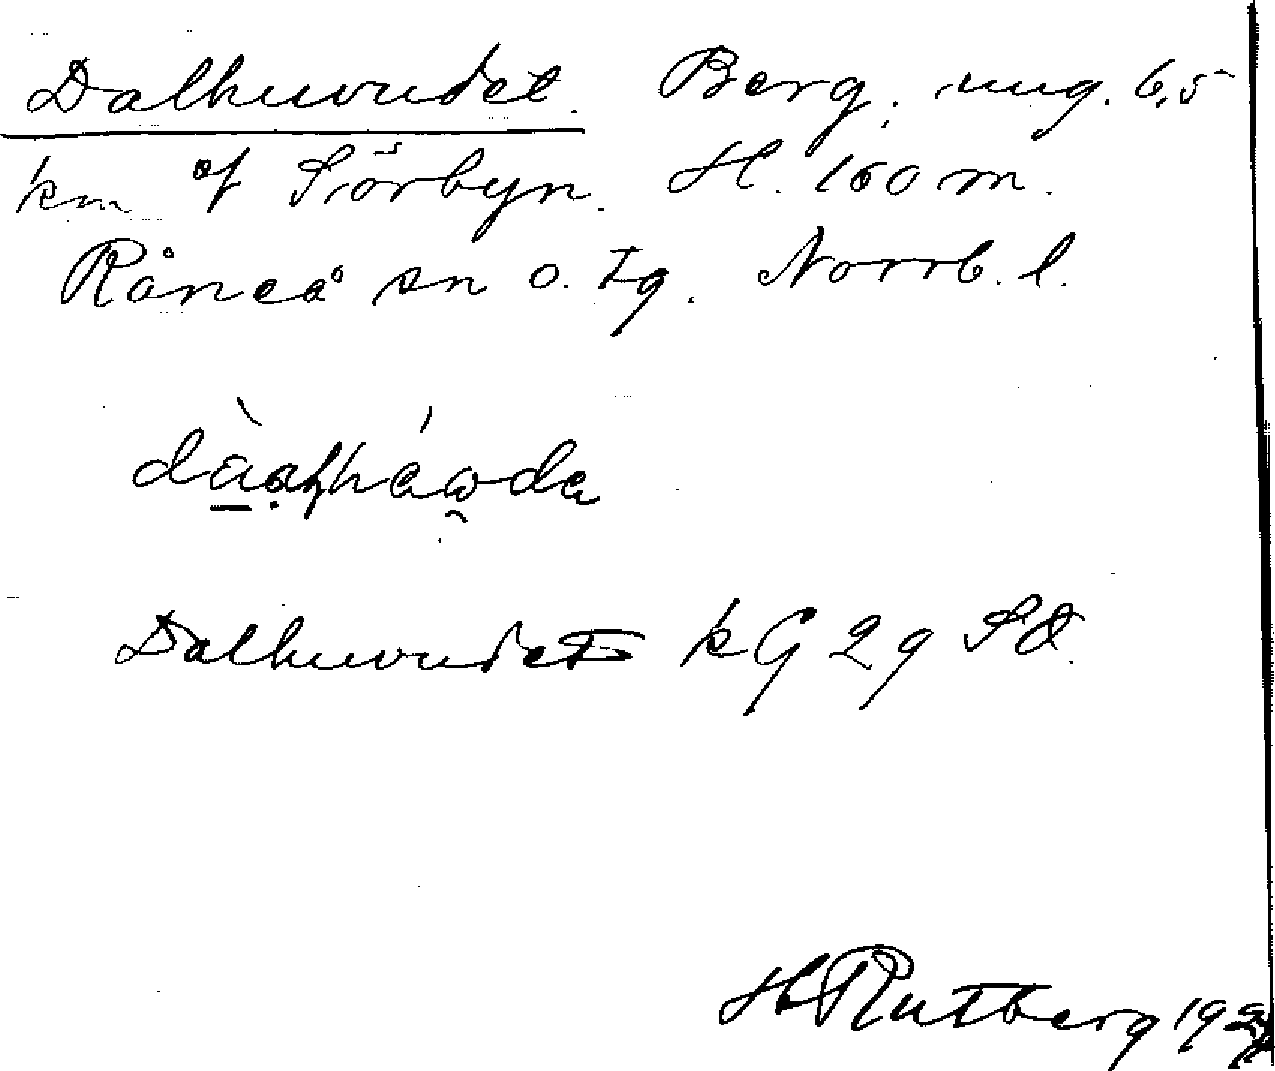 Dalhuvudet. Berg, ung. 6,5
km of Sörbyn. H. 160 m.
Råneå sn o. tg. Norrb. l.
Dalhuvudet kG 29 SO.
H Rutberg